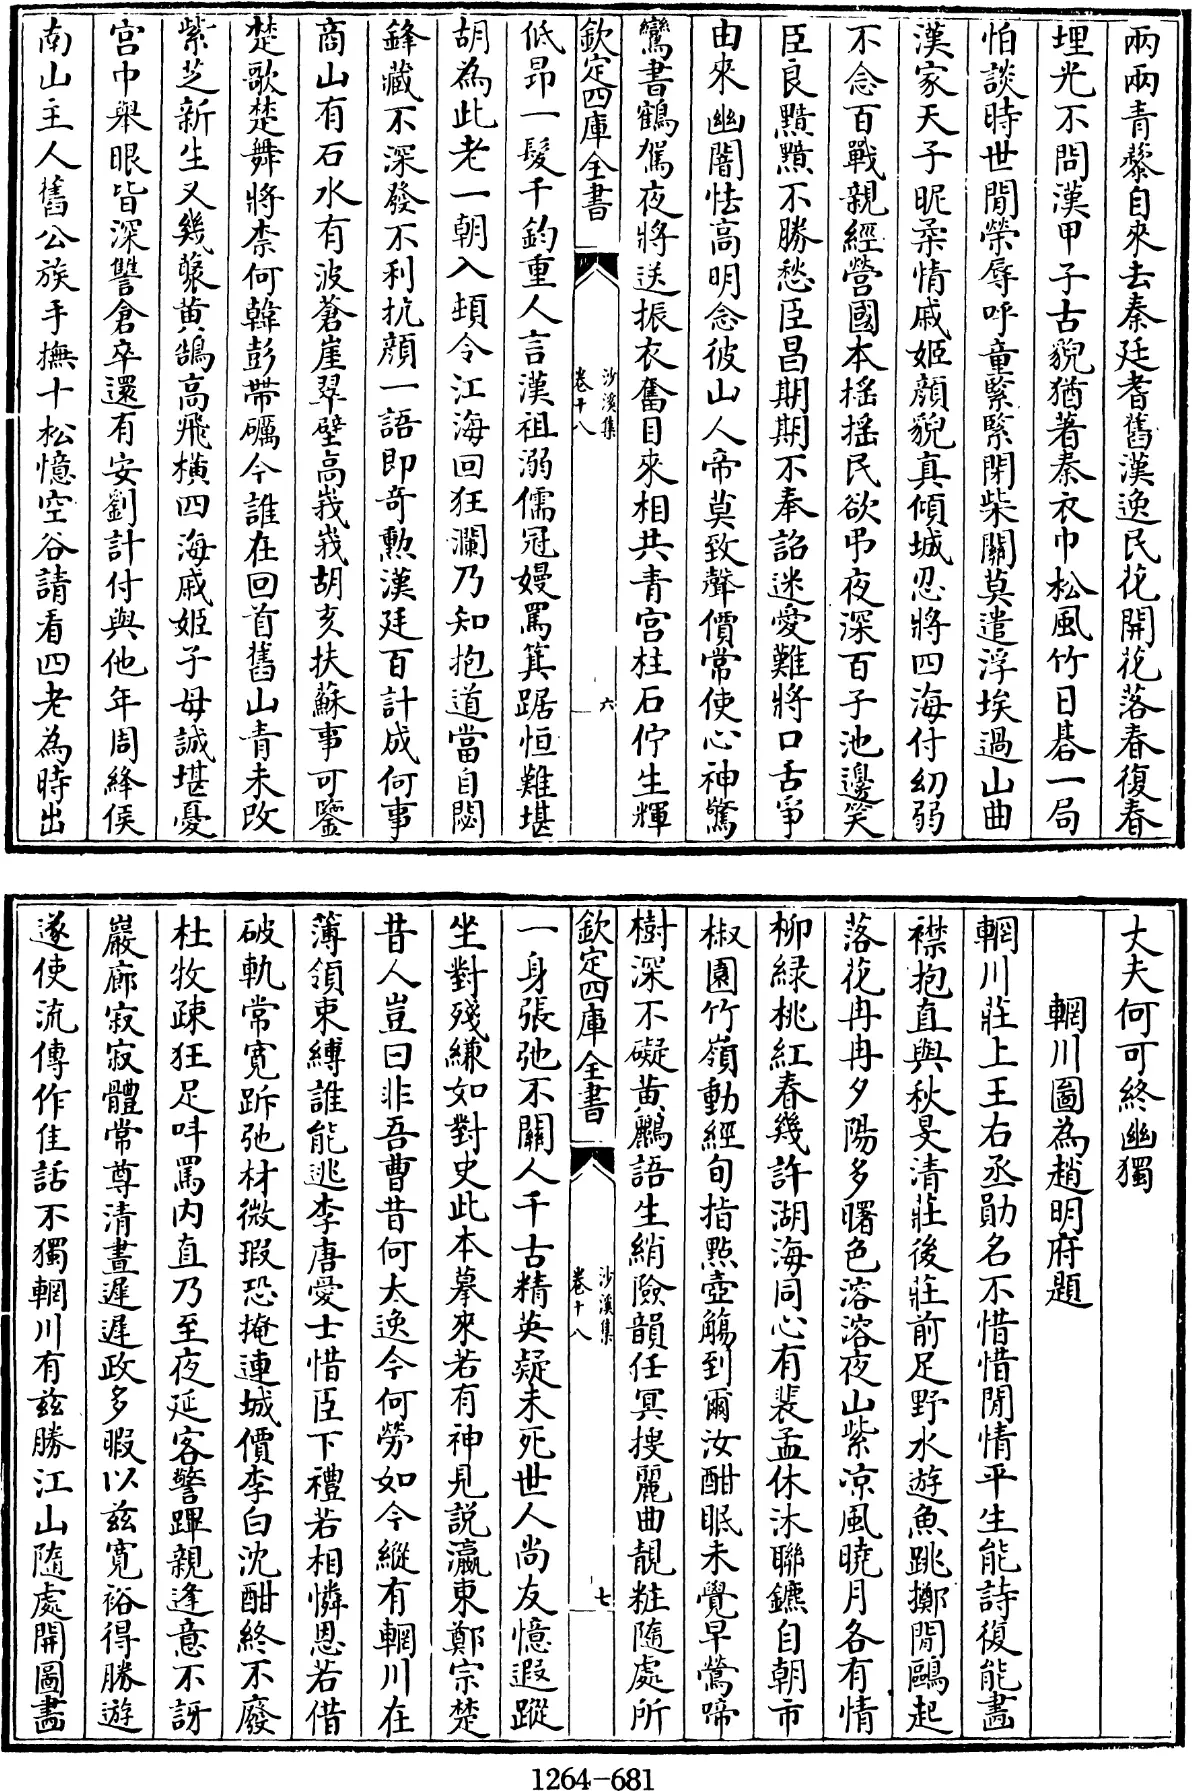 兩兩青藜自來去秦廷耆舊漢逸民花開花落春復春
埋光不問漢甲子古貌猶著秦衣巾松風竹日棊一局
怕談時世閒榮辱呼童緊緊閉柴關莫遣浮埃過山曲
漢家天子昵柔情戚姬顔貌真傾城忍將四海付幼弱
不念百戰親經營國本摇摇民欲弔夜深百子池邊笑
臣良黯黯不勝愁臣昌期期不奉詔迷愛難將口舌爭
由來幽闇怯高明念彼山人帝莫致聲價常使心神驚
鸞書鶴駕夜將送振衣奮目來相共青宫柱石佇生輝
欽定四庫全書
沙溪集
卷十八
六
低昂一髮千鈞重人言漢祖溺儒冠嫚罵箕踞恒難堪
胡為此老一朝入頓令江海回狂瀾乃知抱道當自閟
鋒藏不深發不利抗顔一語即奇勲漢廷百計成何事
商山有石水有波蒼崖翠壁高峩峩胡亥扶蘇事可鑒
楚歌楚舞將柰何韓彭帶礪今誰在回首舊山青未改
紫芝新生又幾蓑黄鵠高飛橫四海戚姬子母誠堪憂
宫中舉眼皆深讐倉卒還有安劉計付與他年周絳侯
南山主人舊公族手撫十松憶空谷請看四老為時出
丈夫何可終幽獨
輞川圖為趙明府題
輞川莊上王右丞勛名不惜惜閒情平生能詩復能畵
襟抱直與秋旻清莊後莊前足野水遊魚跳擲閒鷗起
落花冉冉夕陽多曙色溶溶夜山紫凉風曉月各有情
柳緑桃紅春幾許湖海同心有裴孟休沐聯鑣自朝市
椒園竹嶺動經旬指點壺觴到爾汝酣眠未覺早鶯啼
樹深不礙黄鸝語生綃險韻任冥搜麗曲靚粧隨處所
欽定四庫全書
沙溪集
卷十八
七
一身張弛不關人千古精英疑未死世人尚友憶遐蹤
坐對殘縑如對史此本摹來若有神見説瀛東鄭宗楚
昔人豈曰非吾曹昔何太逸今何勞如今縱有輞川在
薄領束縛誰能逃李唐愛士惜臣下禮若相憐恩若借
破軌常寛跅弛材微瑕恐掩連城價李白沈酣終不廢
杜牧疎狂足呌罵内直乃至夜延客警蹕親逢意不訝
巖廊寂寂體常尊清晝遲遲政多暇以兹寛裕得勝遊
遂使流傳作佳話不獨輞川有兹勝江山隨處開圖畵
1264-681